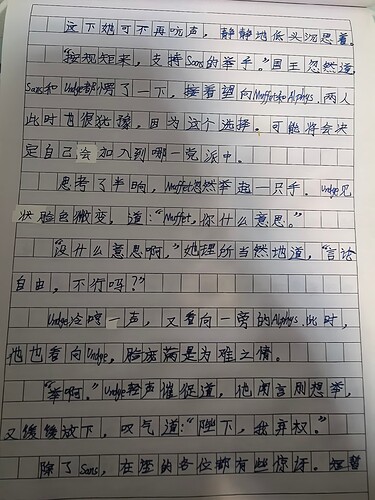 这下她可不再吭声，静静地低头沉思着。
“按规矩来，支持Sans的举手。”国王忽然道，
Sans和Undyne都愣了一下，接着望向Muffet和Alphys，两人
此时皆很犹豫，因为这个选择，可能将会决
定自己会加入到哪一党派中。
思考了半晌，Muffet忽然举起一只手。Undyne见
状脸色微变，道：“Muffet，你什么意思。”
“没什么意思啊，”她理所当然地道，“言论
自由，不行吗？”
Undyne冷哼一声，又看向一旁的Alphys，此时，
他也看向Undyne，脸庞满是为难之情。
“举啊。”Undyne轻声催促道，他闻言刚想举，
又缓缓放下，叹气道：“陛下，我弃权。”
除了Sans，在座的各位都有些惊讶。短暂